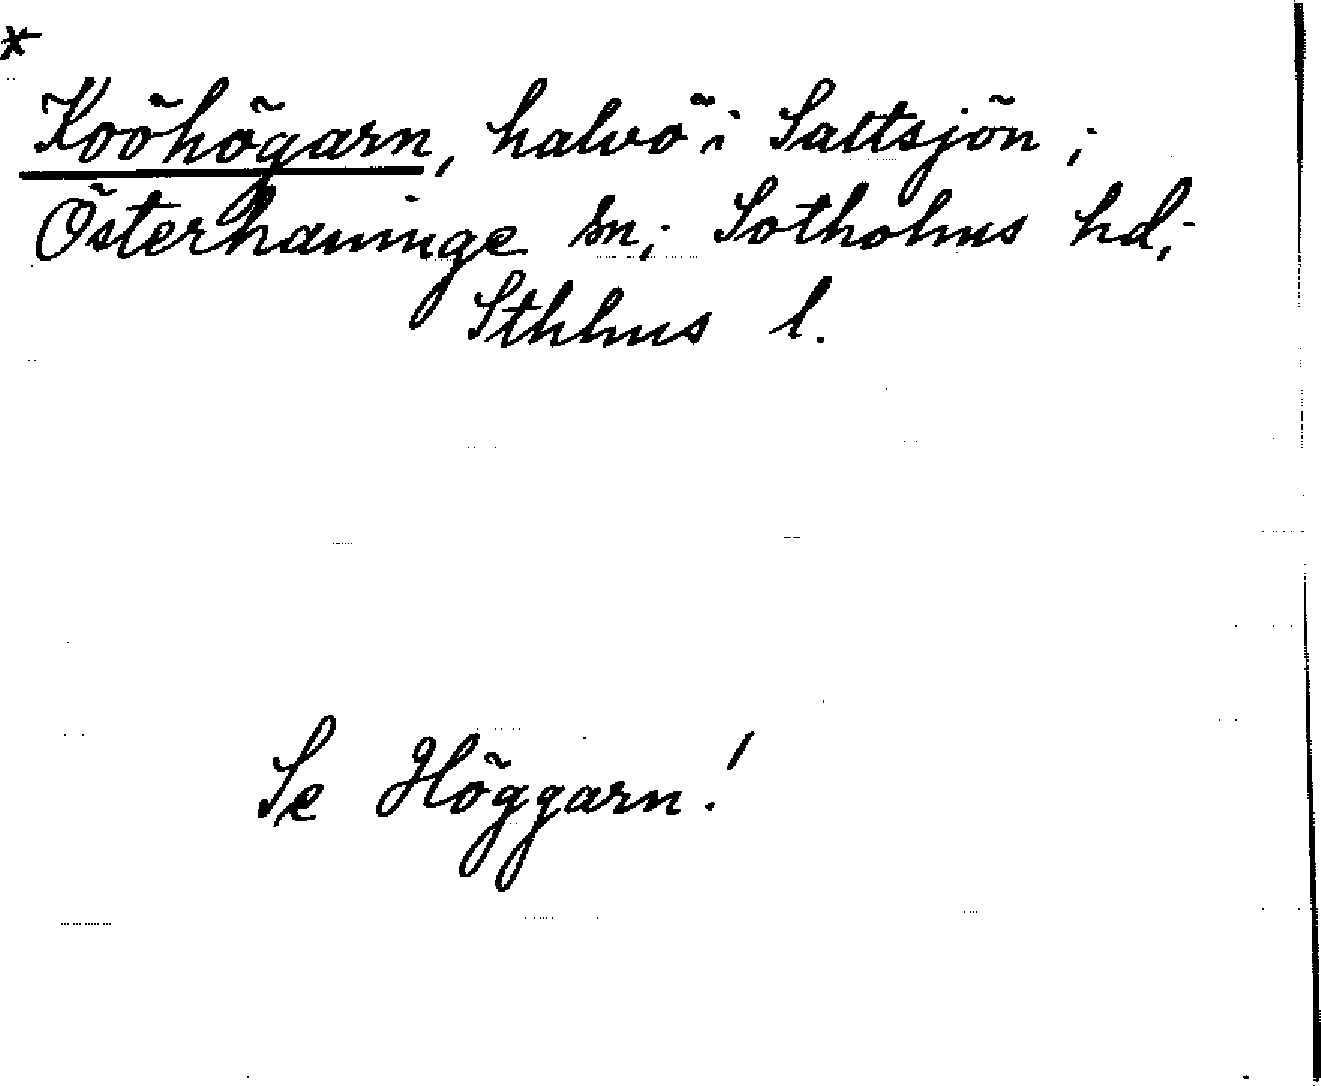 x
Kooһögarn, halvö i Saltsjön ;
Österhaninge sn; Sotholms hd;
Sthlms l.
Se Höggarn!